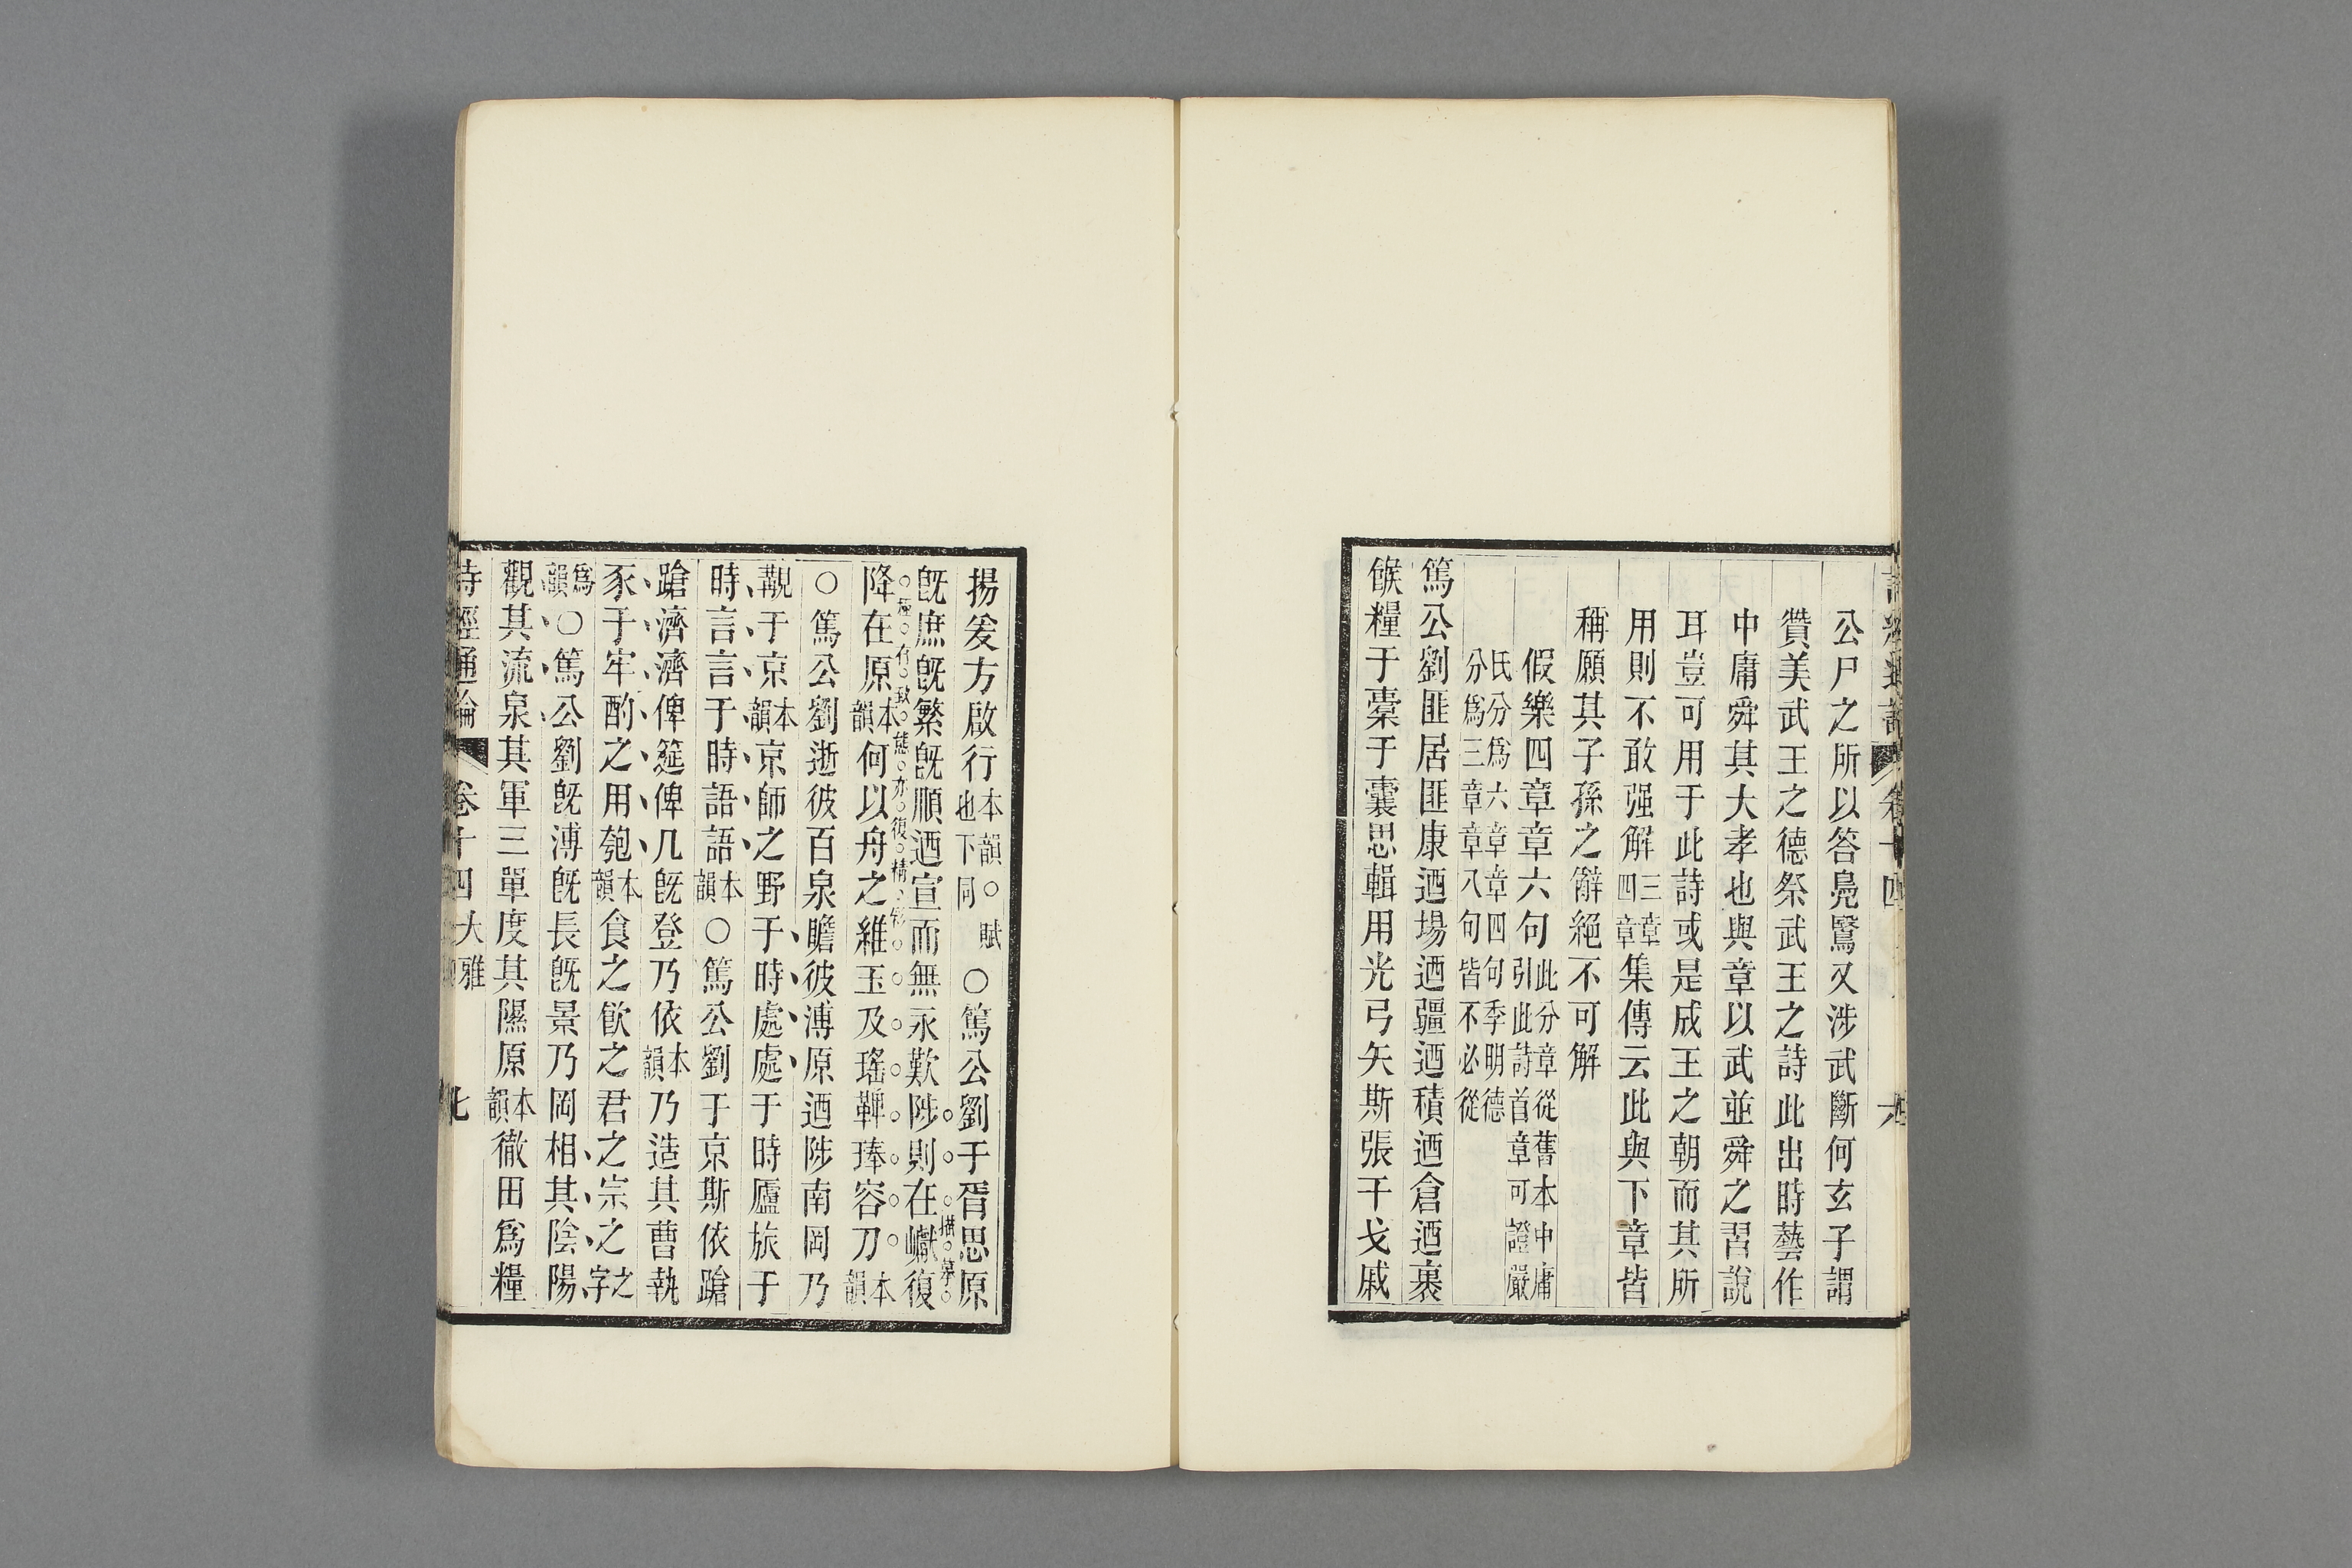 詩經通論 卷十四 六
公尸之所以答鳧鷖又涉武斷何玄子謂
贊美武王之德祭武王之詩此出時藝作
中庸舜其大孝也與章以武並舜之習說
耳豈可用于此詩或是成王之朝而其所
用則不敢强解三章四章集傳云此與下章皆
稱願其子孫之辭絕不可解
假樂四章章六句此分章從舊本中庸引此詩首章可證嚴
氏分爲六章章四句季明德分爲三章章八句皆不必從
篤公劉匪居匪康迺場迺疆迺積迺倉迺裹
餱糧于橐于囊思輯用光弓矢斯張干戈戚
揚爰方啟行本韻○賦也下同○篤公劉于胥思原
描摹
旣庶旣繁旣順迺宣而無永歎陟則在巘復
有致態亦復精
降在原本韻何以舟之維玉及瑤鞞琫容刀本韻
○篤公劉逝彼百泉瞻彼溥原迺陟南岡乃
覯于京本韻京師之野于時處處于時廬旅于
時言言于時語語本韻○篤公劉于京斯依蹌
蹌濟濟俾筵俾几旣登乃依本韻乃造其曹執
豕于牢酌之用匏本韻食之飮之君之宗之之字
爲韻○篤公劉旣溥旣長旣景乃岡相其陰陽
觀其流泉其軍三單度其隰原本韻徹田爲糧
詩經通論 卷十四 大雅 七